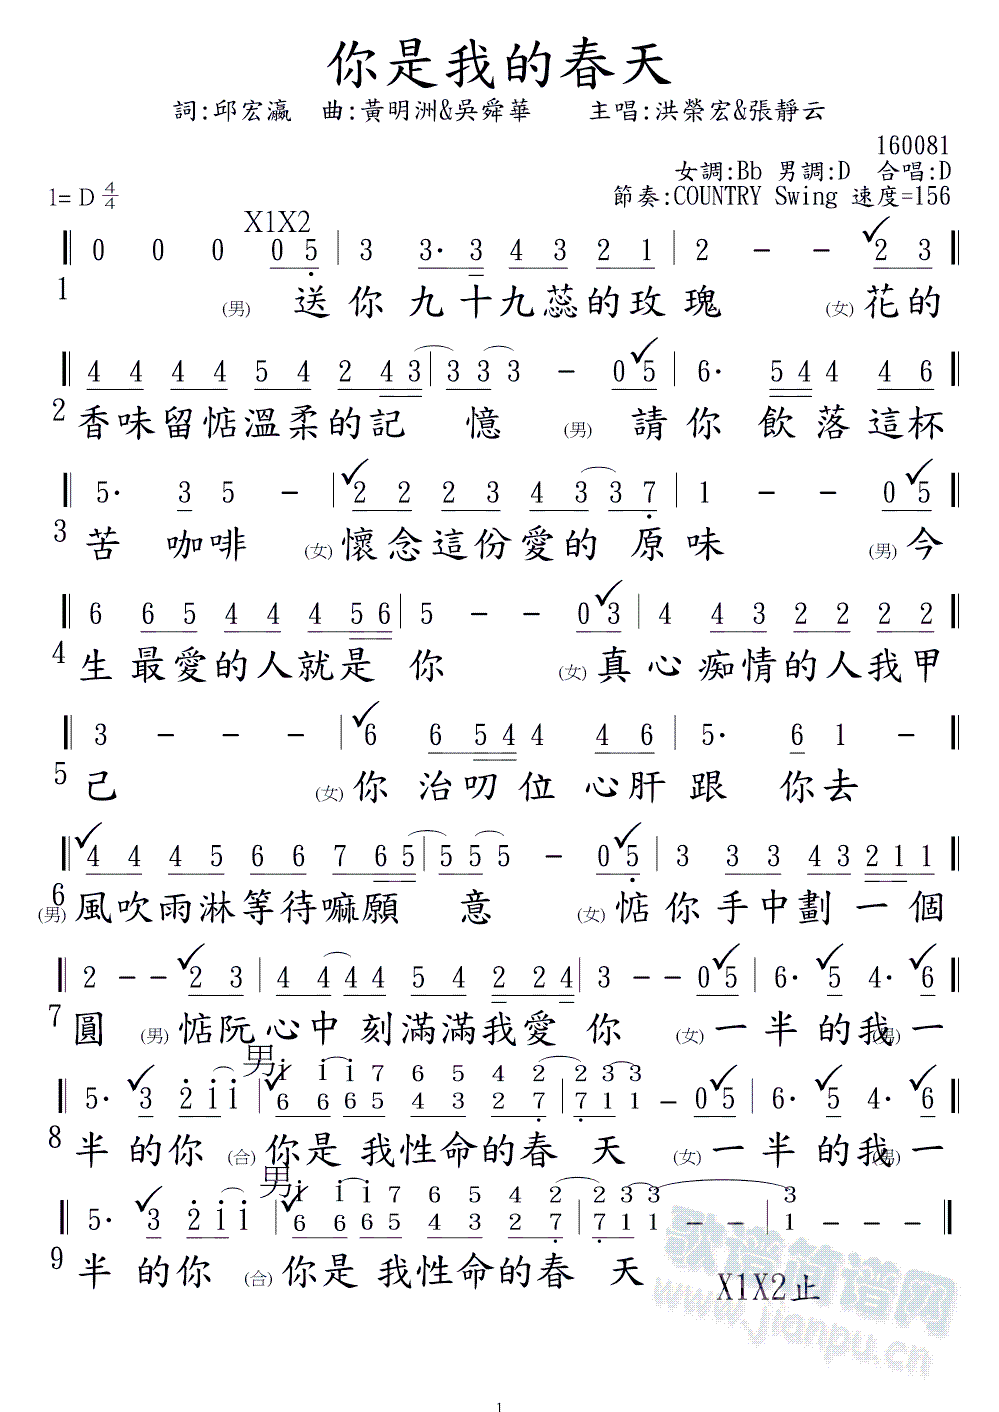 你是我的春天
詞:邱宏瀛 曲:黃明洲&吳舜華 主唱:洪榮宏&張靜云
160081
女調:Bb 男調:D 合唱:D
1= D 4/4 節奏:COUNTRY Swing 速度=156
X1X2
0 0 0 0 5 | 3 3· 3 4 3 2 1 | 2 - - 2 3
1 (男) 送你九十九蕊的玫瑰 (女) 花的
4 4 4 4 5 4 2 4 3 | 3 3 3 - 0 5 | 6· 5 4 4 4 6
2 香味留惦溫柔的記憶 (男) 請你飲落這杯
5· 3 5 - | 2 2 2 3 4 3 3 7 | 1 - - 0 5
3 苦咖啡 (女) 懷念這份愛的原味 (男) 今
6 6 5 4 4 4 5 6 | 5 - - 0 3 | 4 4 3 2 2 2 2
4 生最愛的人就是你 (女) 真心痴情的人我甲
3 - - - | 6 6 5 4 4 4 6 | 5· 6 1 -
5 己 (女) 你治叨位心肝跟你去
4 4 4 5 6 6 7 6 5 | 5 5 5 - 0 5 | 3 3 3 4 3 2 1 1
6 (男) 風吹雨淋等待嘛願意 (女) 惦你手中劃一個
2 - - 2 3 | 4 4 4 4 5 4 2 2 4 | 3 - - 0 5 | 6· 5 4· 6
7 圓 (男) 惦阮心中刻滿滿我愛你 (女) 一半的我 (男) 一
男 i i i 7 6 5 4 2 2 3 3
5· 3 2 i i | 6 6 6 5 4 3 2 7 | 7 1 1 - 0 5 | 6· 5 4· 6
8 半的你 (合) 你是我性命的春天 (女) 一半的我 (男) 一
男 i i i 7 6 5 4 2 2 3 3 3
5· 3 2 i i | 6 6 6 5 4 3 2 7 | 7 1 1 - - | 1 - - -
9 半的你 (合) 你是我性命的春天
X1X2止
歌谱简谱网
www.jianpu.cn
1